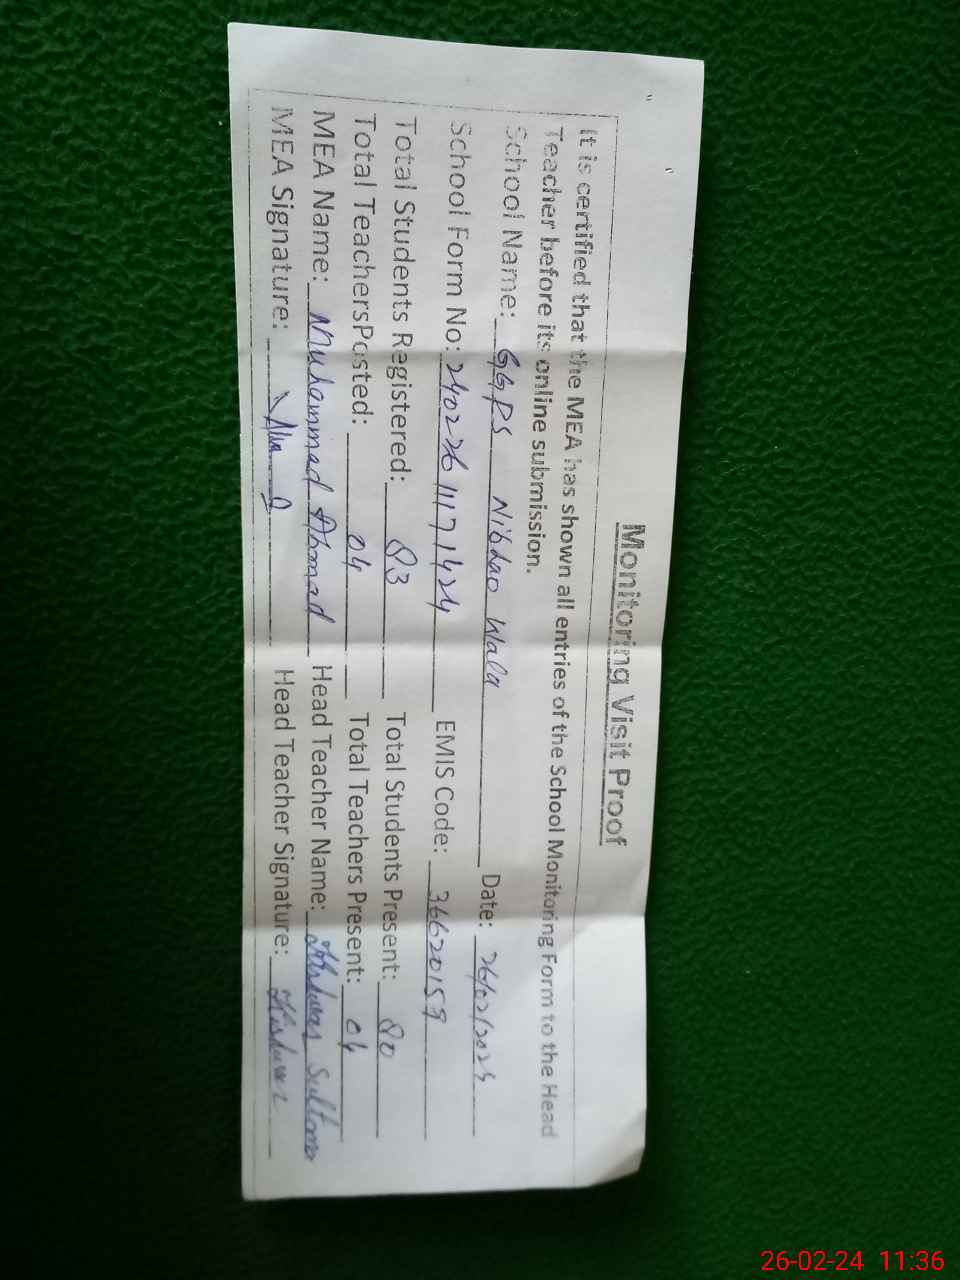 Monitoring Visit Proof
It is certified that the MEA has shown all entries of the School Monitoring Form to the Head
Teacher before its online submission.
School Name: GGPS Nibhao Wala Date: 26/02/2024
School Form No: 24022611171424 EMIS Code: 36620159
Total Students Registered: 83 Total Students Present: 80
Total TeachersPosted: 04 Total Teachers Present: 04
MEA Name: Muhammad Ahmad Head Teacher Name: Firdous Sultana
MEA Signature: Head Teacher Signature:
26-02-24 11:36